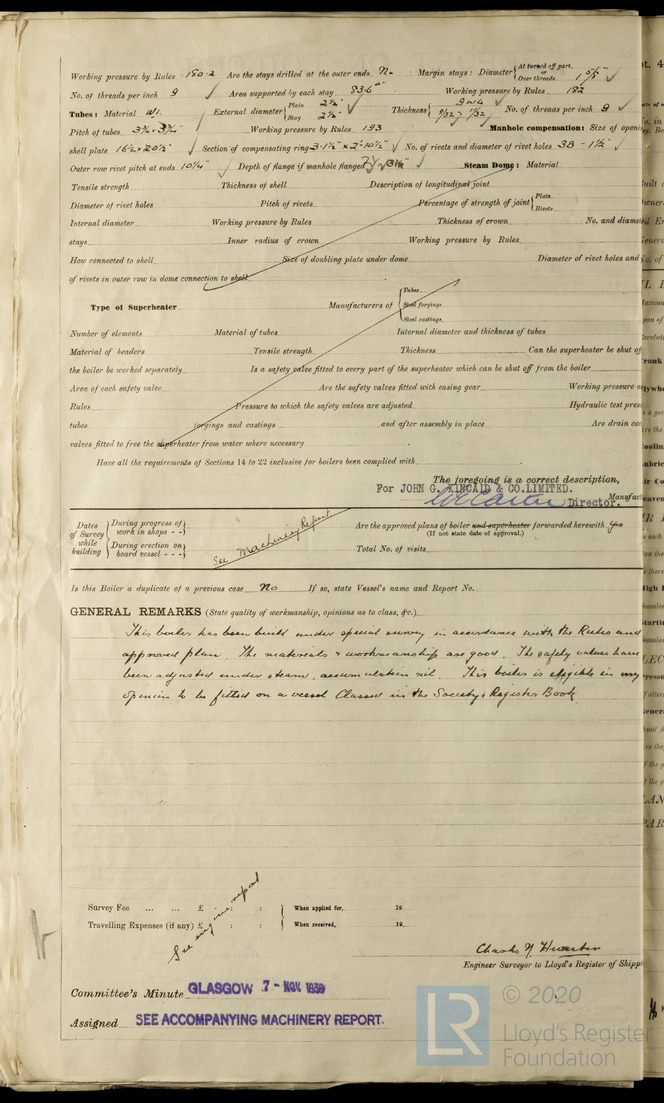 Working pressure by Rules 180.2 Are the stays drilled at the outer ends No Margin stays: Diameter { At turned off part, or Over threads
No. of threads per inch 9 ✓ Area supported by each stay Working pressure by Rules 192
Tubes: Material External diameter { Plain 2½" Stay 2½" ✓ Thickness { 9 WG 9/32 11/32 ✓ No. of threads per inch 9 ✓
Pitch of tubes 3¾" × 3¾" Working pressure by Rules 193 Manhole compensation: Size of opening
shell plate 16½ × 20½ ✓ Section of compensating ring 3·1½" × 2·10½" ✓ No. of rivets and diameter of rivet holes 38 - 1½" ✓
Outer row rivet pitch at ends 10¼" ✓ Depth of flange if manhole flanged 3½" ✓ Steam Dome: Material
Tensile strength Thickness of shell Description of longitudinal joint
Diameter of rivet holes Pitch of rivets Percentage of strength of joint { Plate Rivets
Internal diameter Working pressure by Rules Thickness of crown No. and diamet
stays Inner radius of crown Working pressure by Rules
How connected to shell Size of doubling plate under dome Diameter of rivet holes and
of rivets in outer row in dome connection to shell
Type of Superheater Manufacturers of { Tubes Steel forgings Steel castings
Number of elements Material of tubes Internal diameter and thickness of tubes
Material of headers Tensile strength Thickness Can the superheater be shut of
the boiler be worked separately Is a safety valve fitted to every part of the superheater which can be shut off from the boiler
Area of each safety valve Are the safety valves fitted with easing gear Working pressure a
Rules Pressure to which the safety valves are adjusted Hydraulic test pres
tubes forgings and castings and after assembly in place Are drain coc
valves fitted to free the superheater from water where necessary
Have all the requirements of Sections 14 to 22 inclusive for boilers been complied with
The foregoing is a correct description,
For JOHN G. KINCAID & CO. LIMITED.
Director. Manufact
Dates of Survey while building { During progress of work in shops - - } { During erection on board vessel - - - }
See Machinery Report
Are the approved plans of boiler and superheater forwarded herewith Yes
(If not state date of approval.)
Total No. of visits
Is this Boiler a duplicate of a previous case No If so, state Vessel's name and Report No.
GENERAL REMARKS (State quality of workmanship, opinions as to class, &c.)
This boiler has been built under special survey in accordance with the Rules and
approved plan. The materials & workmanship are good. The safety valves have
been adjusted under steam, accumulation nil. This boiler is eligible in my
opinion to be fitted on a vessel Classed in the Society's Register Book
Survey Fee ... ... £ : : } When applied for, 19
Travelling Expenses (if any) £ : : } When received, 19
See engine report
Engineer Surveyor to Lloyd's Register of Shipp
Committee's Minute GLASGOW 7 - NOV 1939
Assigned SEE ACCOMPANYING MACHINERY REPORT.
LR © 2020
Lloyd's Register
Foundation